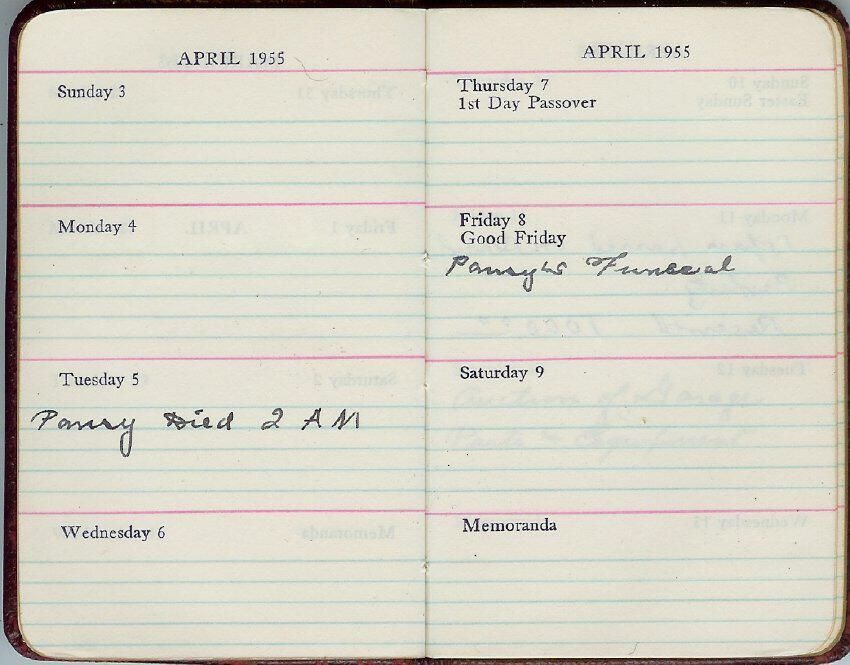 APRIL 1955
Sunday 3
Monday 4
Tuesday 5
Pansy Died 2 AM
Wednesday 6
APRIL 1955
Thursday 7
1st Day Passover
Friday 8
Good Friday
Pansy's Funeral
Saturday 9
Auction of Garage
Parts & Equipment
Memoranda